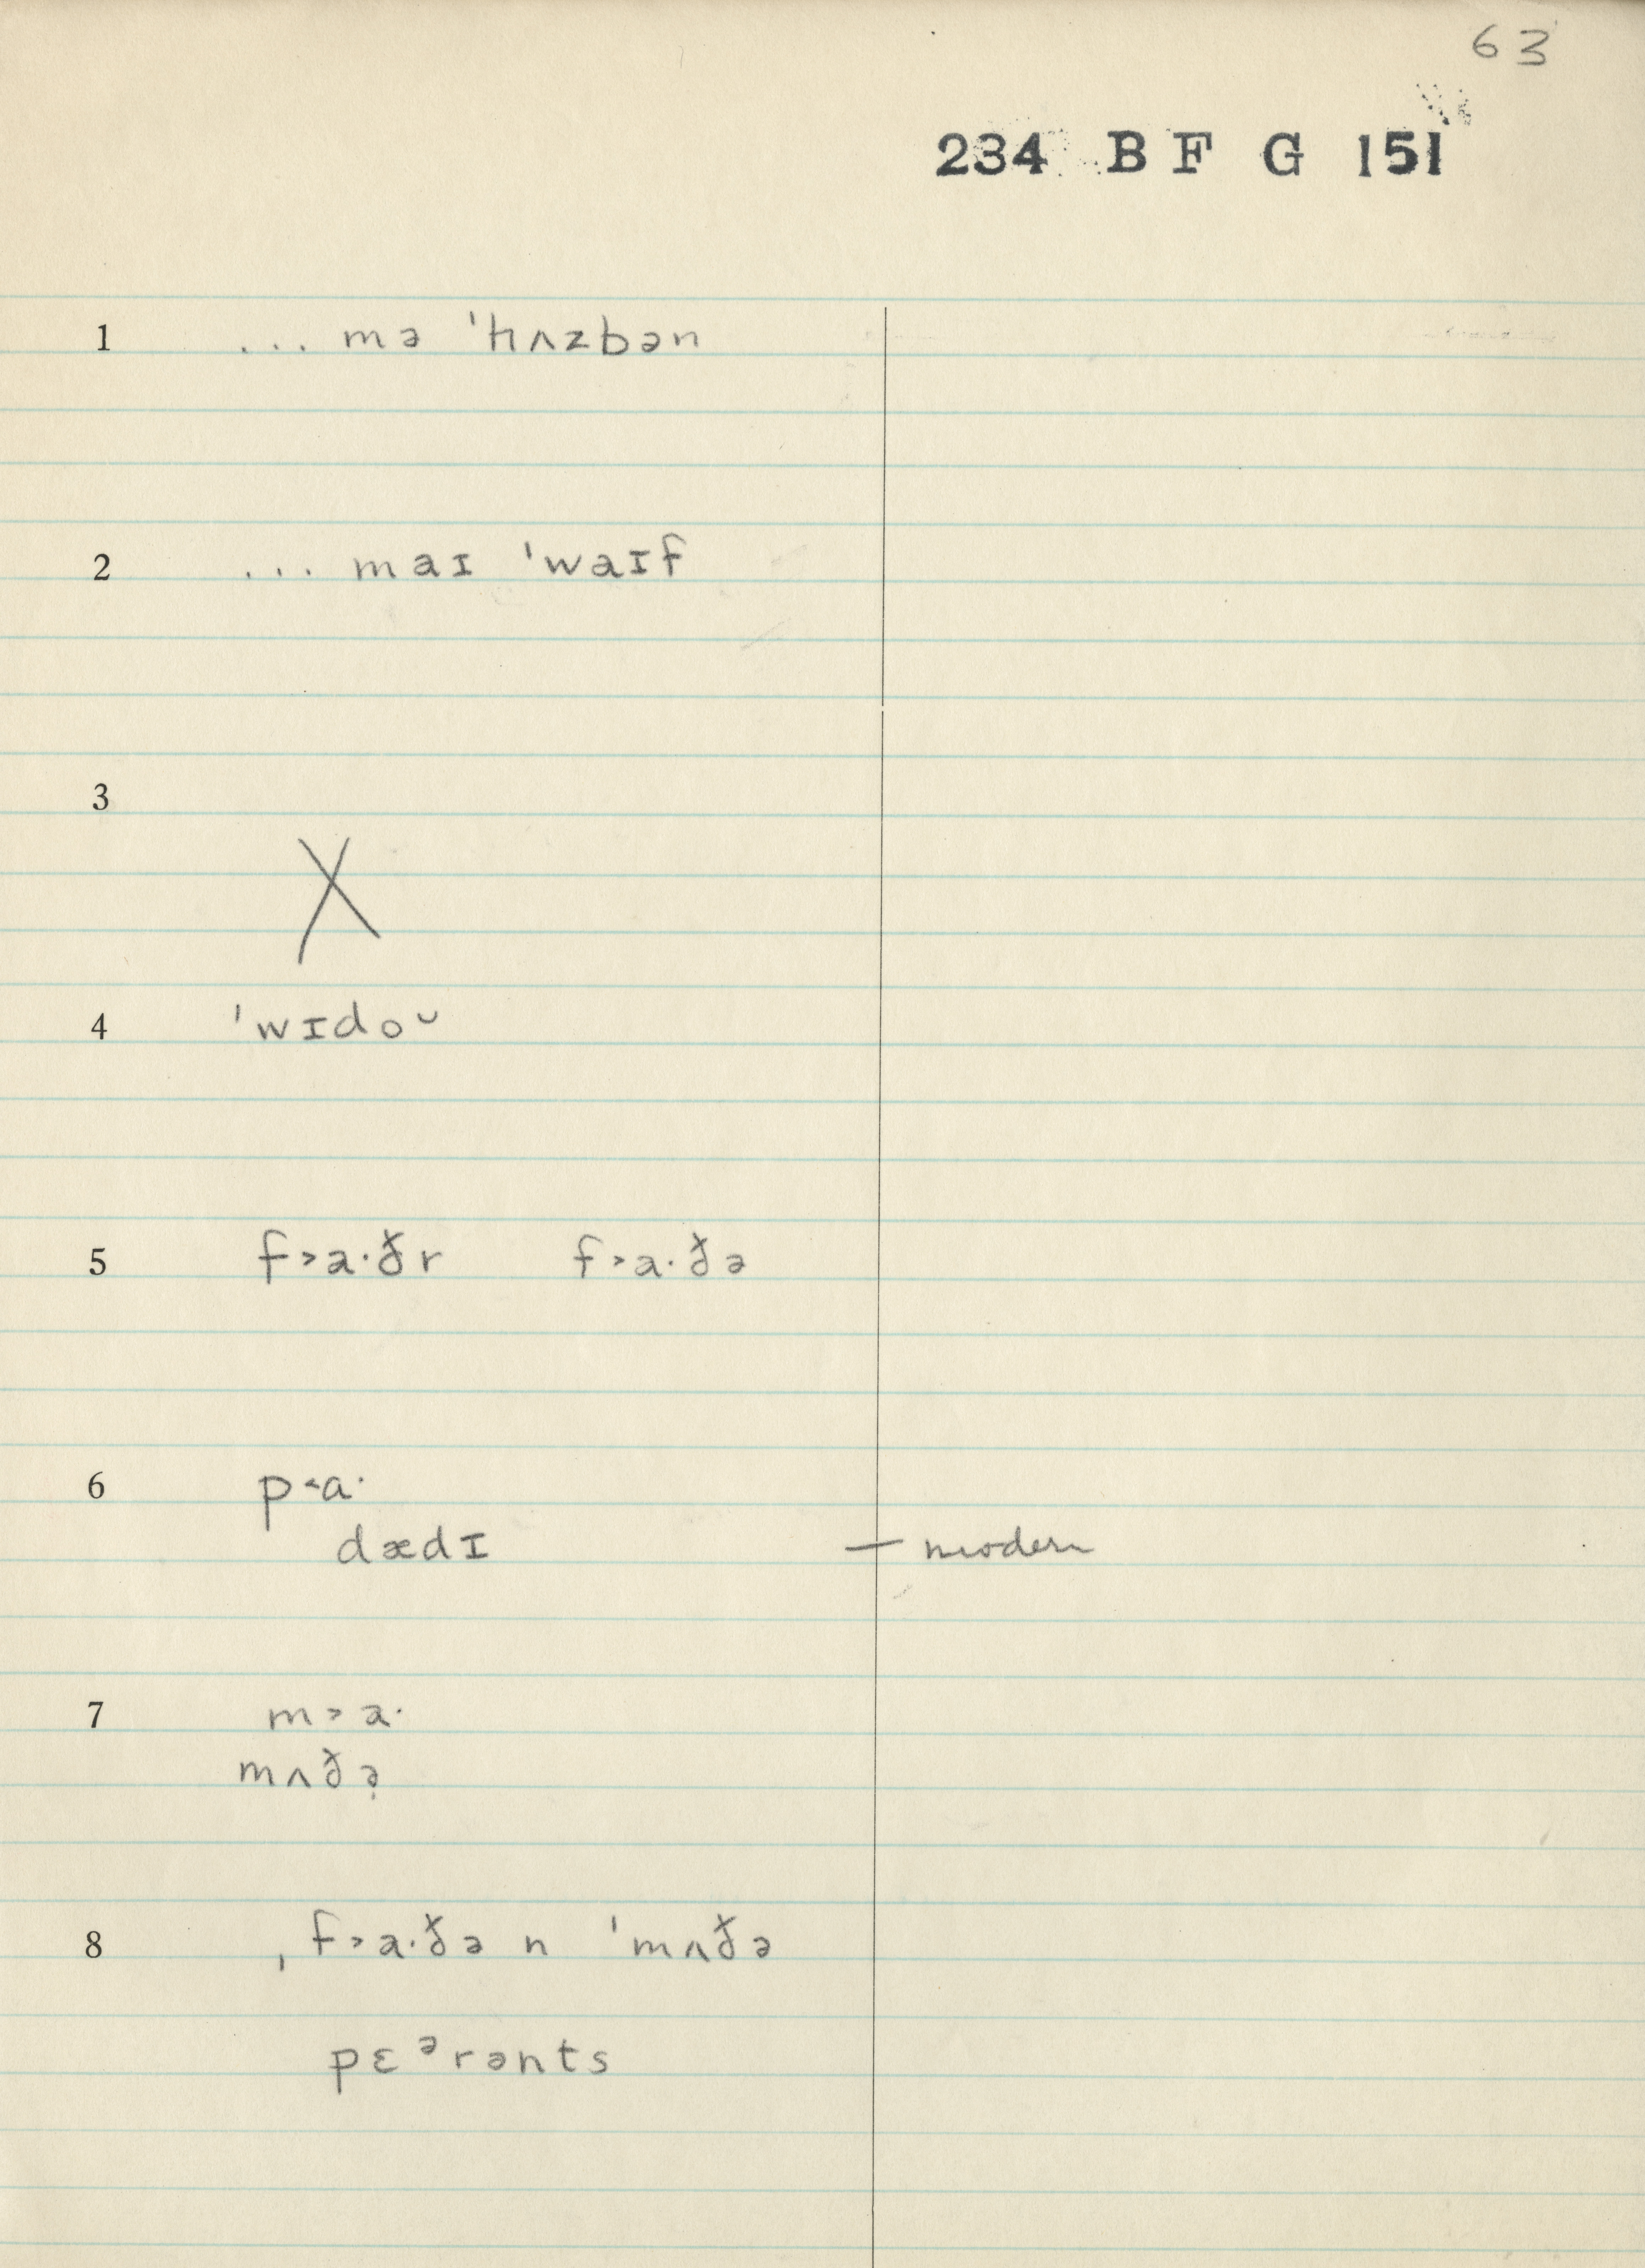 63
234 B F G 151
1 ... mə ˈɦʌzbən
2 ... maɪ ˈwaɪf
3
X
4 ˈwɪdoᴗ
5 f˃a·ðr f˃a·ðə
6 p˂ɑ·
dædɪ — modern
7 m˃a·
mʌðə̣
8 ˌf˃a·ðə n ˈmʌðə
pɛᵊrənts